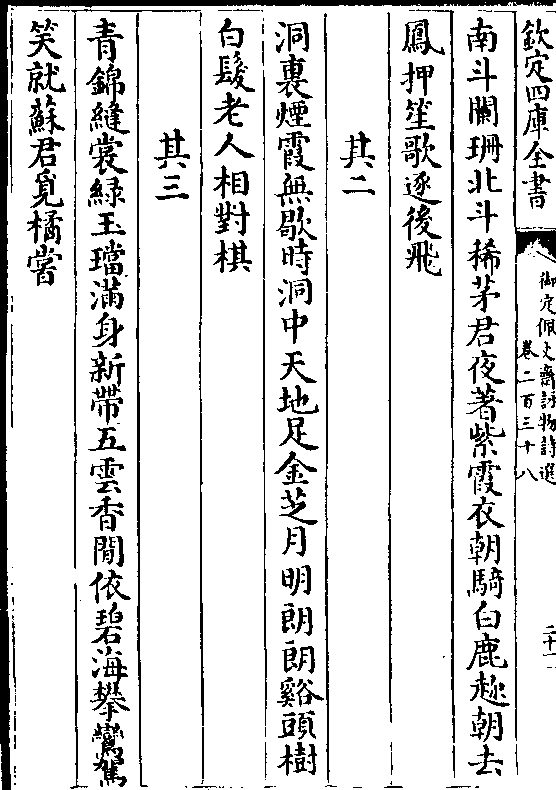 欽定四庫全書
御定佩文齋詠物詩選
卷二百三十八
二十一
南斗闌珊北斗稀茅君夜著紫霞衣朝騎白鹿趂朝去
鳳押笙歌逐後飛
其二
洞裏煙霞無歇時洞中天地足金芝月明朗朗谿頭樹
白髮老人相對棋
其三
青錦縫裳綠玉璫滿身新帶五雲香閒依碧海攀鸞駕
笑就蘇君覓橘嘗